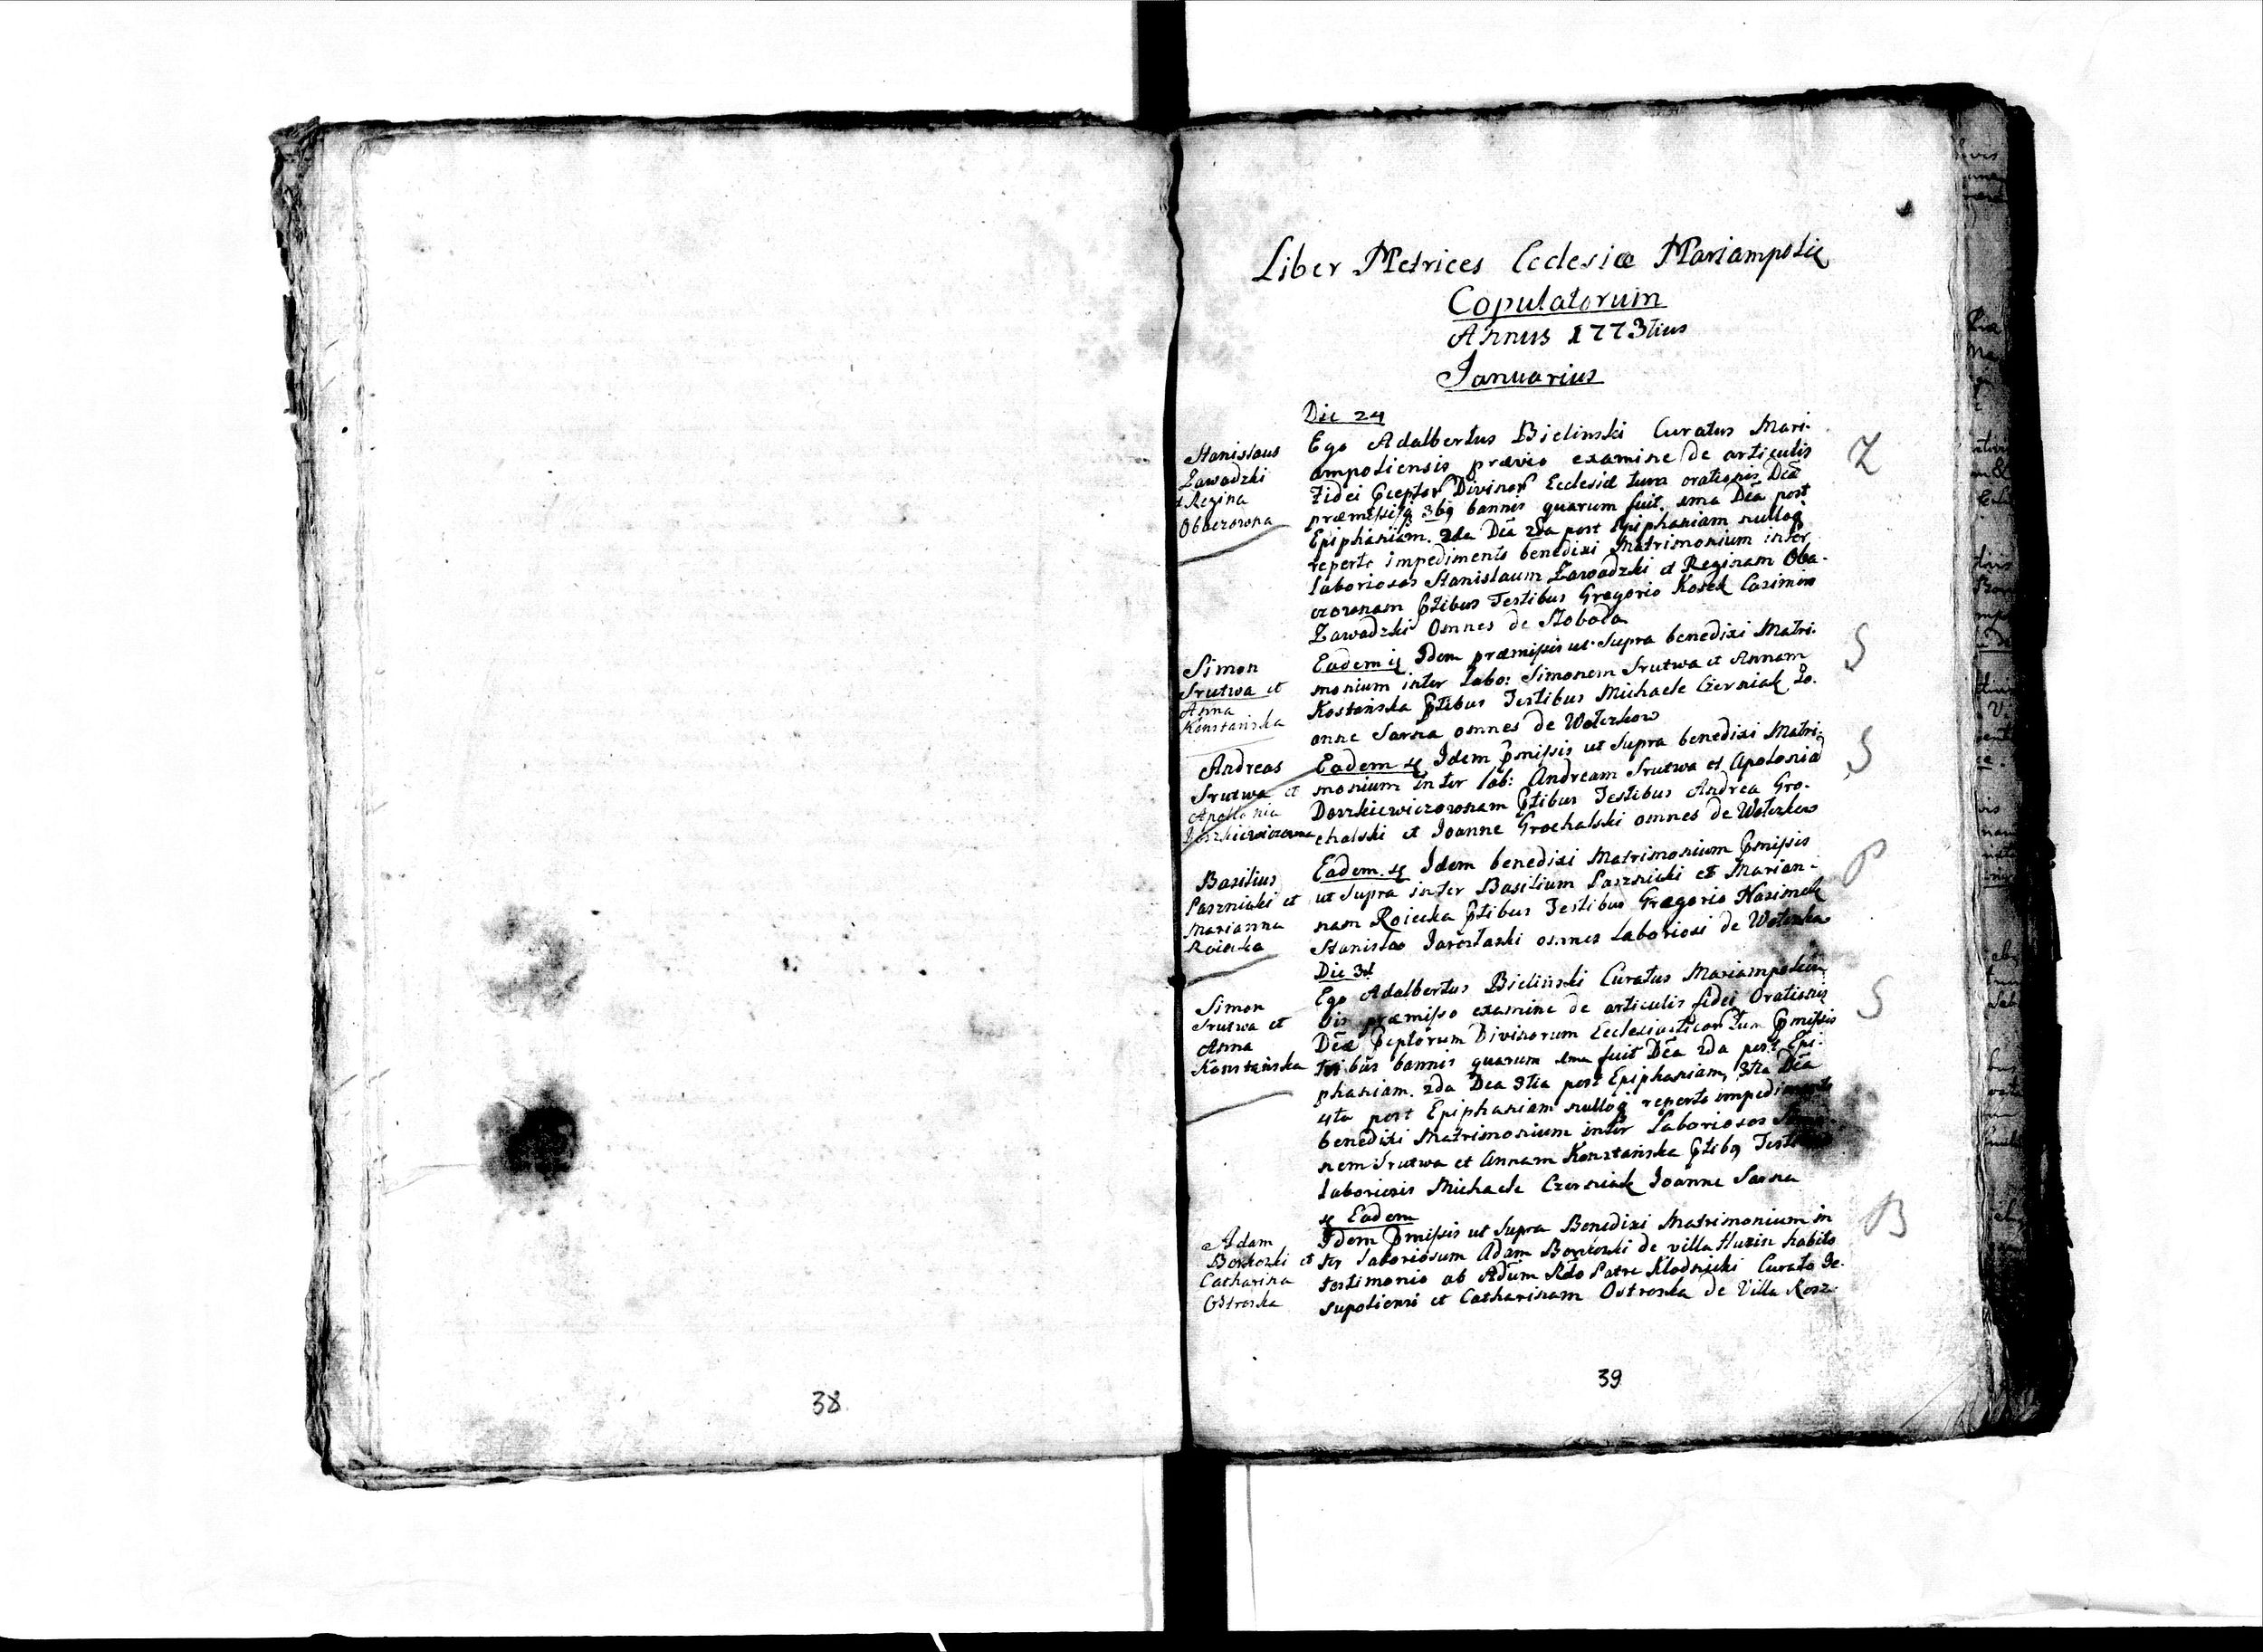 Liber Metrices Ecclesiæ Mariampoliæ
Copulatorum
Annus 1773tius
Januarius
Die 24
Stanislaus
Zawadzki
et Regina
Obaczowna
Ego Adalbertus Bielinski Curatus Mari-
ampoliensis prævio examine de articulis
Fidei Divinor Ecclesiæ tum orationis Dcæ
præmissisq 3bq bannis quarum fuit 1ma Dca post
Epiphaniam. 2da Dca 2da post Epiphaniam nulloq
reperto impedimento benedixi Matrimonium inter
laboriosos Stanislaum Zawadzki et Reginam Oba-
czownam ptibus Testibus Gregorio Kosek Casimiro
Zawadzki Omnes de Sloboda
Z
Simon
Srutwa et
Anna
Konstańska
Eadem Idem præmissis ut Supra benedixi Matri-
monium inter labo: Simonem Srutwa et Annam
Kostańska ptibus Testibus Michaele Czerniak Jo-
anne Sarna omnes de Wolczkow
S
Andreas
Srutwa et
Apollonia
Eadem Idem pmissis ut Supra benedixi Matri-
monium inter lab: Andream Srutwa et Apolonia
Dorzkiewiczownam ptibus Testibus Andrea Gro-
chalski et Joanne Grochalski omnes de Wolczkow
S
Basilius
Paszniaki et
Marianna
Eadem Idem benedixi Matrimonium pmissis
ut Supra inter Basilium Paszniaki et Marian-
nam Roiecka ptibus Testibus Gregorio Nasimek
Stanislao omnes Laboriosi de
P
Die 31
Simon
Srutwa et
Anna
Konstańska
Ego Adalbertus Bieliński Curatus Mariampolien
sis præmisso examine de articulis fidei Orationis
Dcæ pceptorum Divinorum tum pmissis
tribus bannis quarum 1ma fuit Dca 2da post Epi-
phaniam. 2da Dca 3tia post Epiphaniam, 3tia Dca
4ta post Epiphaniam nulloq reperto impedimento
benedixi Matrimonium inter Laboriosos
nem Srutwa et Annam Konstańska ptibq
laboriosis Michaele Czerniak Joanne Sarna
S
Eadem
Adam
et
Catharina
Ostroska
Idem pmissis ut Supra Benedixi Matrimonium in
ter laboriosum Adam de villa habito
testimonio ab Adum Rdo Patre Klodnicki Curato Je-
supoliensi et Catharinam Ostroska de Villa
B
38
39